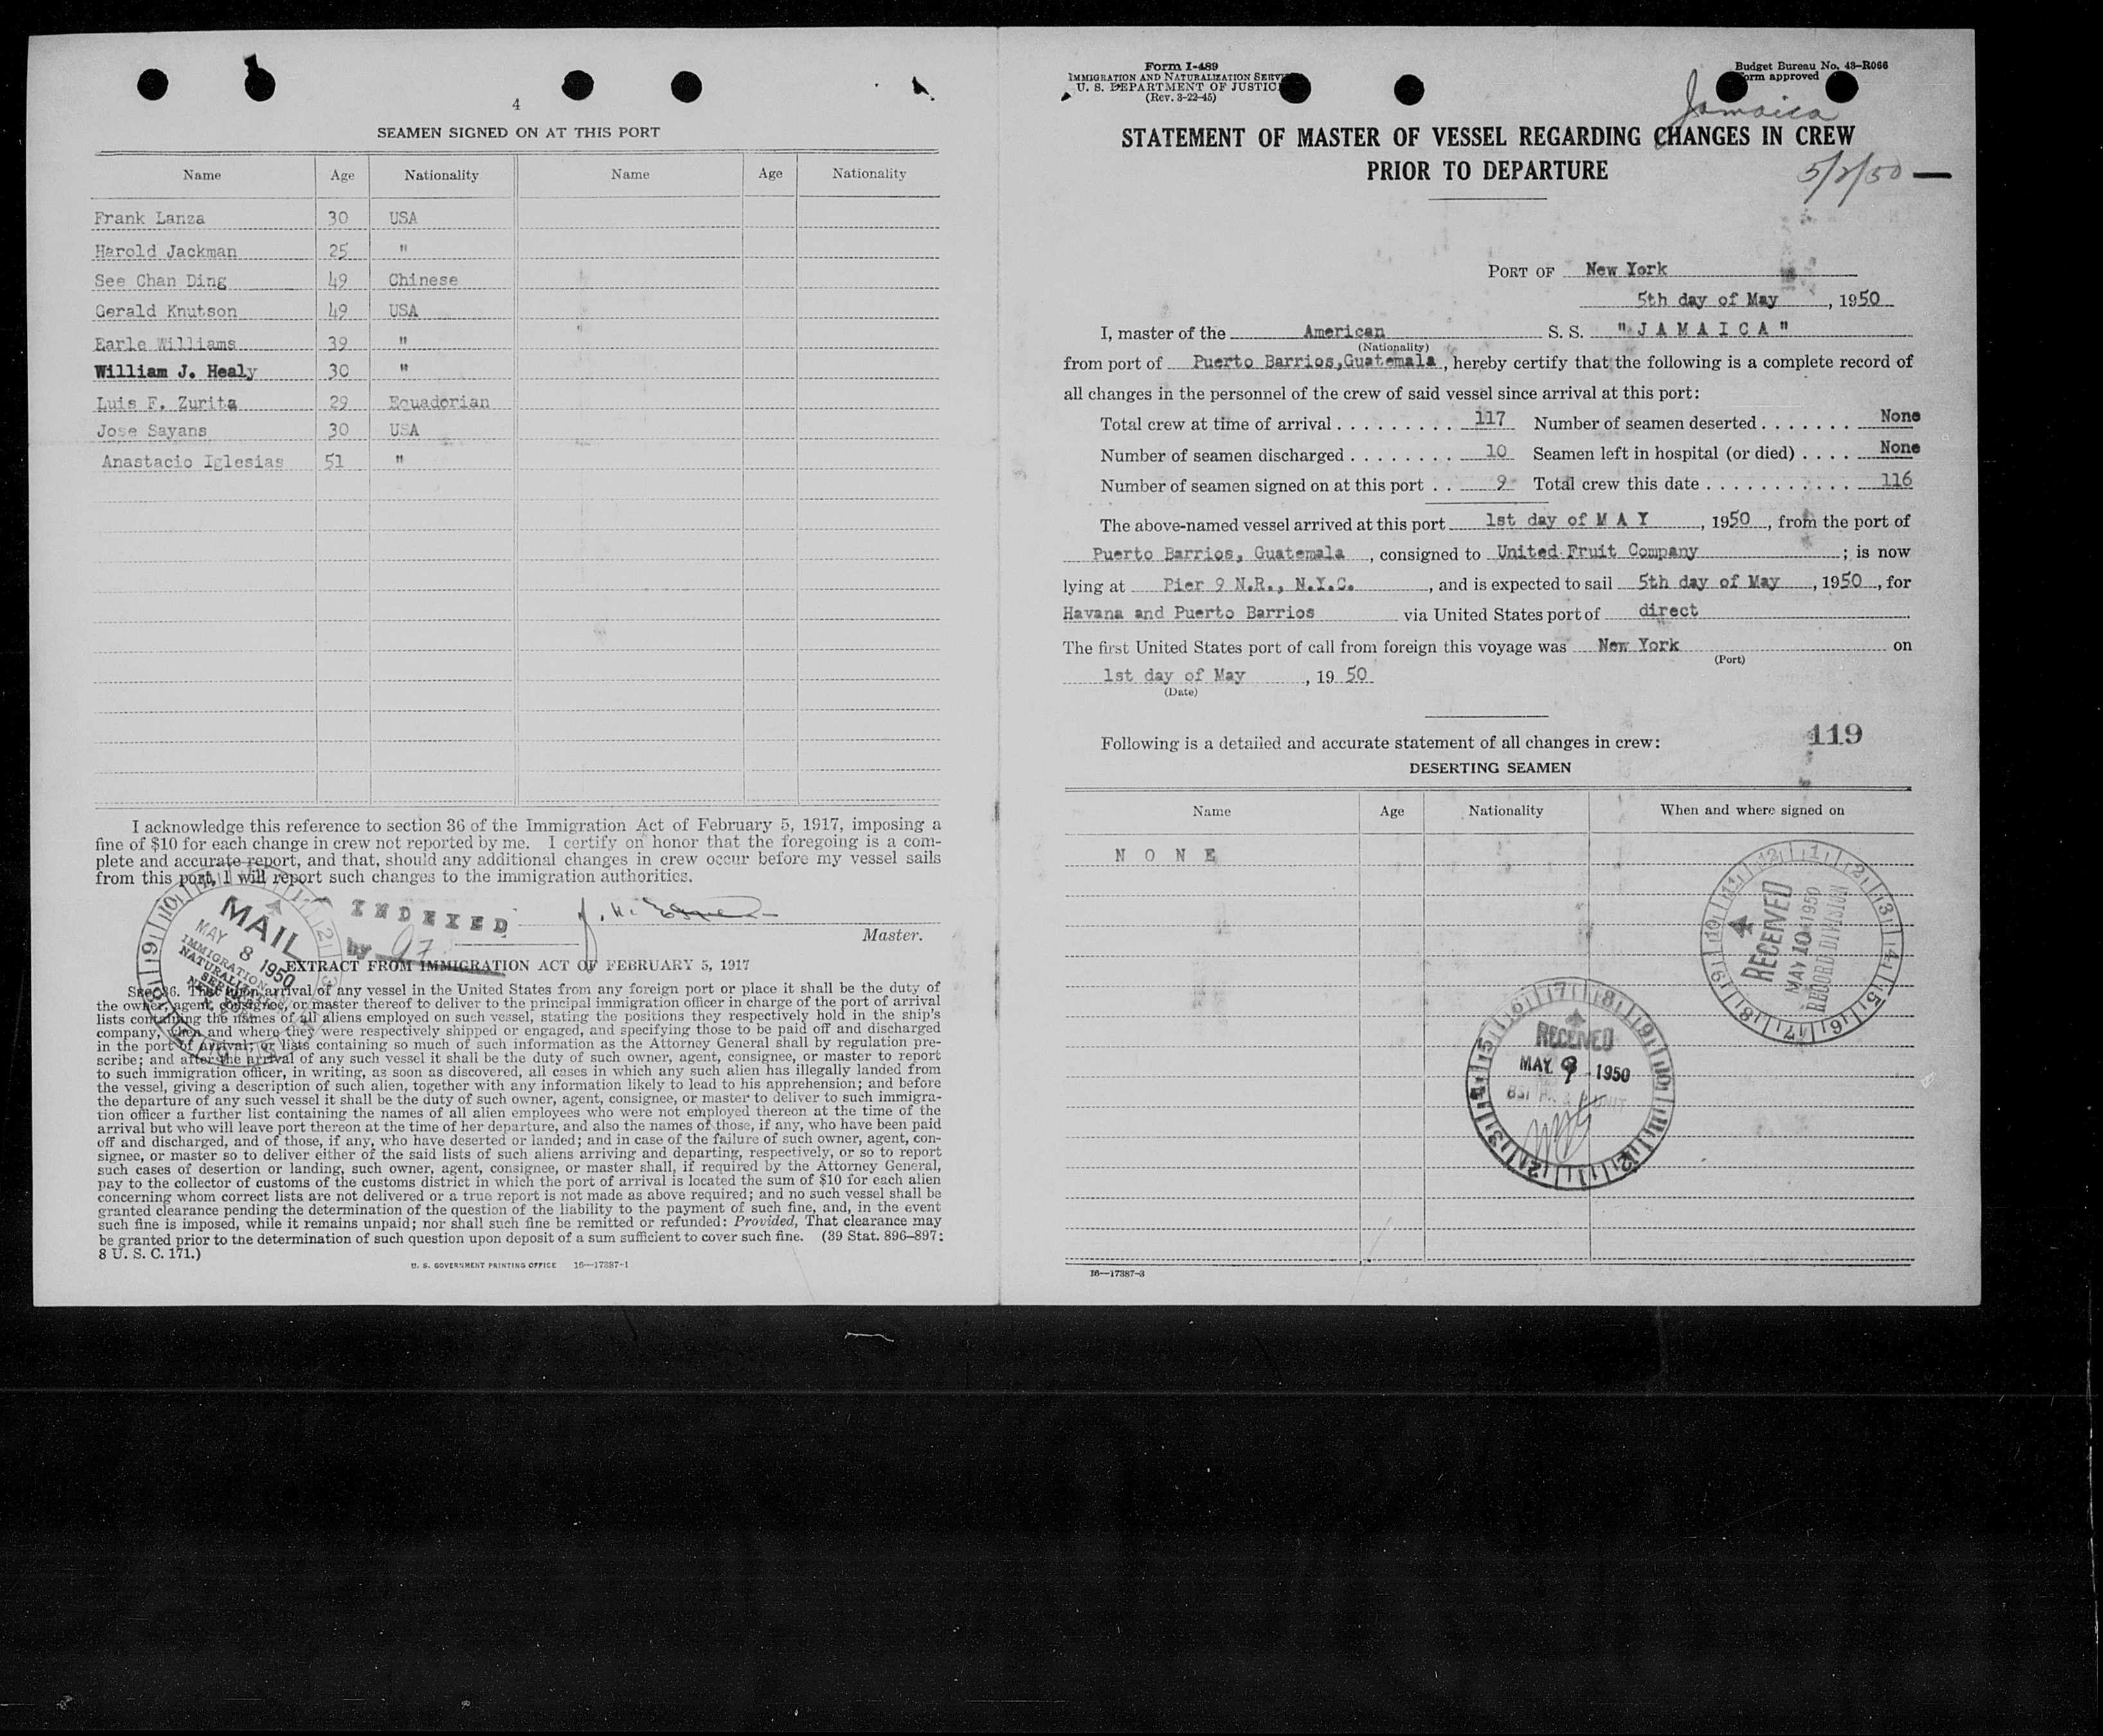 4
SEAMEN SIGNED ON AT THIS PORT
Name Age Nationality Name Age Nationality
Frank Lanza 30 USA
Harold Jackman 25 "
See Chan Ding 49 Chinese
Gerald Knutson 49 USA
Earle Williams 39 "
William J. Healy 30 "
Luis F. Zurita 29 Ecuadorian
Jose Sayans 30 USA
Anastacio Iglesias 51 "
I acknowledge this reference to section 36 of the Immigration Act of February 5, 1917, imposing a
fine of $10 for each change in crew not reported by me. I certify on honor that the foregoing is a com-
plete and accurate report, and that, should any additional changes in crew occur before my vessel sails
from this port, I will report such changes to the immigration authorities.
INDEXED
by
Master.
MAIL
MAY 8 1950
IMMIGRATION
NATURALIZATION
SERVICE
EXTRACT FROM IMMIGRATION ACT OF FEBRUARY 5, 1917
Sec. 36. That upon arrival of any vessel in the United States from any foreign port or place it shall be the duty of
the owner, agent, consignee, or master thereof to deliver to the principal immigration officer in charge of the port of arrival
lists containing the names of all aliens employed on such vessel, stating the positions they respectively hold in the ship's
company, when and where they were respectively shipped or engaged, and specifying those to be paid off and discharged
in the port of arrival; or lists containing so much of such information as the Attorney General shall by regulation pre-
scribe; and after the arrival of any such vessel it shall be the duty of such owner, agent, consignee, or master to report
to such immigration officer, in writing, as soon as discovered, all cases in which any such alien has illegally landed from
the vessel, giving a description of such alien, together with any information likely to lead to his apprehension; and before
the departure of any such vessel it shall be the duty of such owner, agent, consignee, or master to deliver to such immigra-
tion officer a further list containing the names of all alien employees who were not employed thereon at the time of the
arrival but who will leave port thereon at the time of her departure, and also the names of those, if any, who have been paid
off and discharged, and of those, if any, who have deserted or landed; and in case of the failure of such owner, agent, con-
signee, or master so to deliver either of the said lists of such aliens arriving and departing, respectively, or so to report
such cases of desertion or landing, such owner, agent, consignee, or master shall, if required by the Attorney General,
pay to the collector of customs of the customs district in which the port of arrival is located the sum of $10 for each alien
concerning whom correct lists are not delivered or a true report is not made as above required; and no such vessel shall be
granted clearance pending the determination of the question of the liability to the payment of such fine, and, in the event
such fine is imposed, while it remains unpaid; nor shall such fine be remitted or refunded: Provided, That clearance may
be granted prior to the determination of such question upon deposit of a sum sufficient to cover such fine. (39 Stat. 896-897;
8 U. S. C. 171.)
U. S. GOVERNMENT PRINTING OFFICE 16—17387-1
Form I-489
IMMIGRATION AND NATURALIZATION SERVICE
U. S. DEPARTMENT OF JUSTICE
(Rev. 3-22-45)
Budget Bureau No. 43-R066
Form approved
Jamaica
STATEMENT OF MASTER OF VESSEL REGARDING CHANGES IN CREW
PRIOR TO DEPARTURE
5/2/50
PORT OF New York
5th day of May, 1950
I, master of the American S. S. "JAMAICA"
(Nationality)
from port of Puerto Barrios, Guatemala, hereby certify that the following is a complete record of
all changes in the personnel of the crew of said vessel since arrival at this port:
Total crew at time of arrival . . . . . . . . . . 117 Number of seamen deserted . . . . . . . None
Number of seamen discharged . . . . . . . . 10 Seamen left in hospital (or died) . . . . None
Number of seamen signed on at this port . . 9 Total crew this date . . . . . . . . . . . . 116
The above-named vessel arrived at this port 1st day of M A Y, 1950, from the port of
Puerto Barrios, Guatemala, consigned to United Fruit Company; is now
lying at Pier 9 N.R., N.Y.C., and is expected to sail 5th day of May, 1950, for
Havana and Puerto Barrios via United States port of direct
The first United States port of call from foreign this voyage was New York on
(Port)
1st day of May, 19 50
(Date)
119
Following is a detailed and accurate statement of all changes in crew:
DESERTING SEAMEN
Name Age Nationality When and where signed on
N O N E
RECEIVED
MAY 10 1950
RECORD DIVISION
RECEIVED
MAY 9 1950
16—17387-3